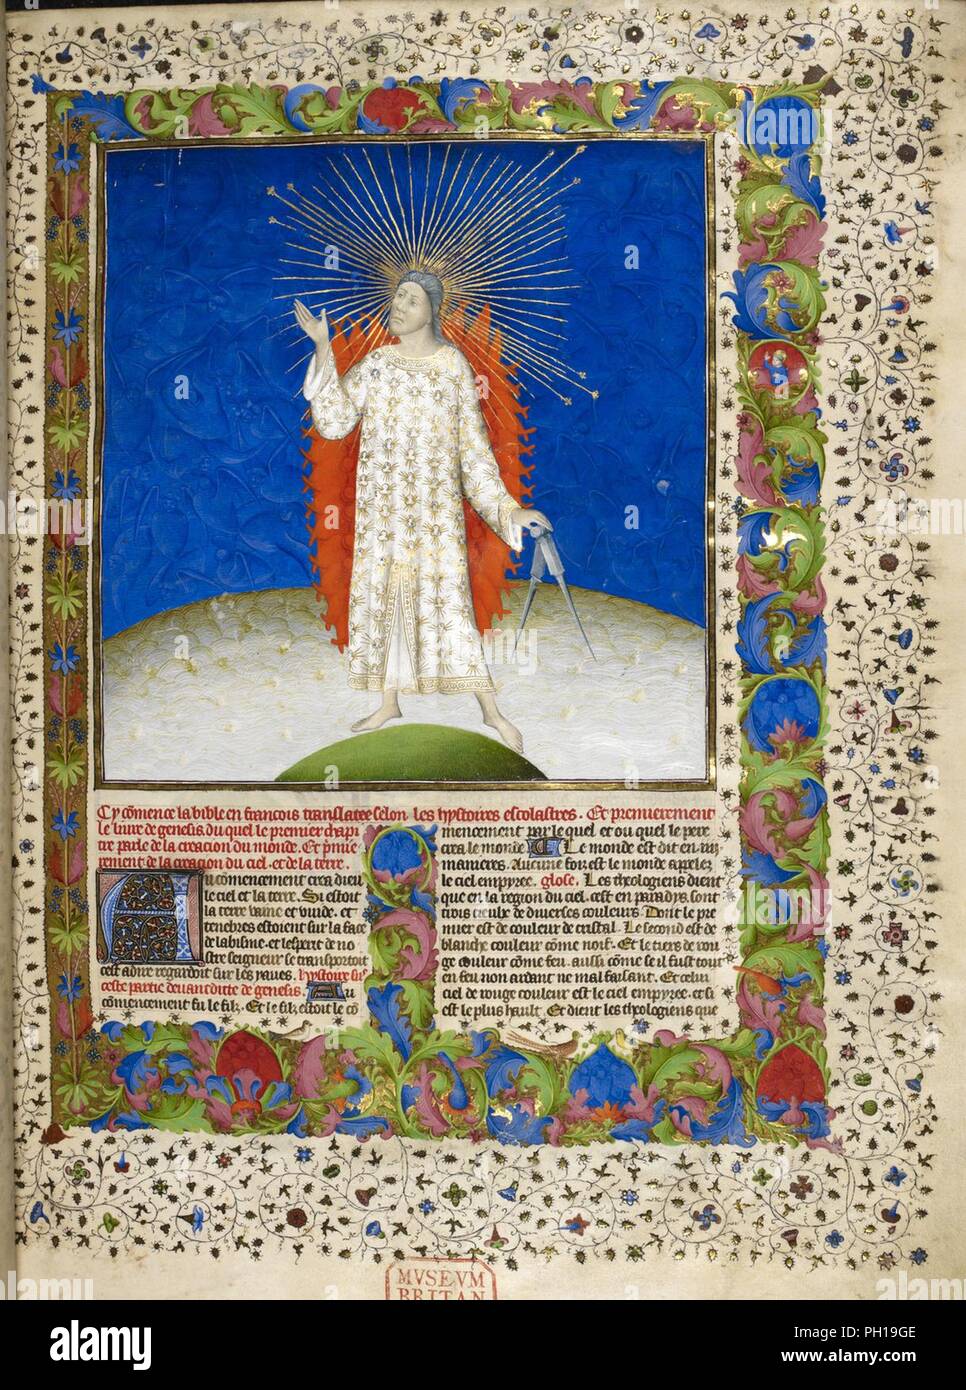 Cy cōmence la bible en francois translatee selon les hystoires escolastres. Et premierement
le liure de genesis. du quel le premier chapi
tre parle de la creacion du monde. Et p̄mie
rement de la creacion du ciel. et de la terre.
Au cōmencement crea dieu
le ciel et la terre. Si estoit
la terre vaine et vuide. et
tenebres estoient sur la face
de labisme. et lesperit de no
stre seigneur se transportoit
cest adire regardoit sur les yaues. hystoire sur
ceste partie deuant ditte de genesis. Au
cōmencement fu le filz. Et le filz estoit le cō
mencement par le quel et ou quel le pere
crea le monde. Le monde est dit en
manieres. Aucune foiz est le monde appelez
le ciel empyree. glose. Les theologiens dient
que en la region du ciel. cest en paradys. sont
trois cieulx de diuerses couleurs. Dont le pre
mier est de couleur de cristal. Le second est de
blanche couleur cōme noif. Et le tiers de rou
ge couleur cōme feu. aussi cōme se il fust tout
en feu non ardant ne mal faisant. Et celui
ciel de rouge couleur est le ciel empyree. et si
est le plus hault. Et dient les theologiens que
MVSEVM
BRITAN
alamy
PH19GE
www.alamy.com